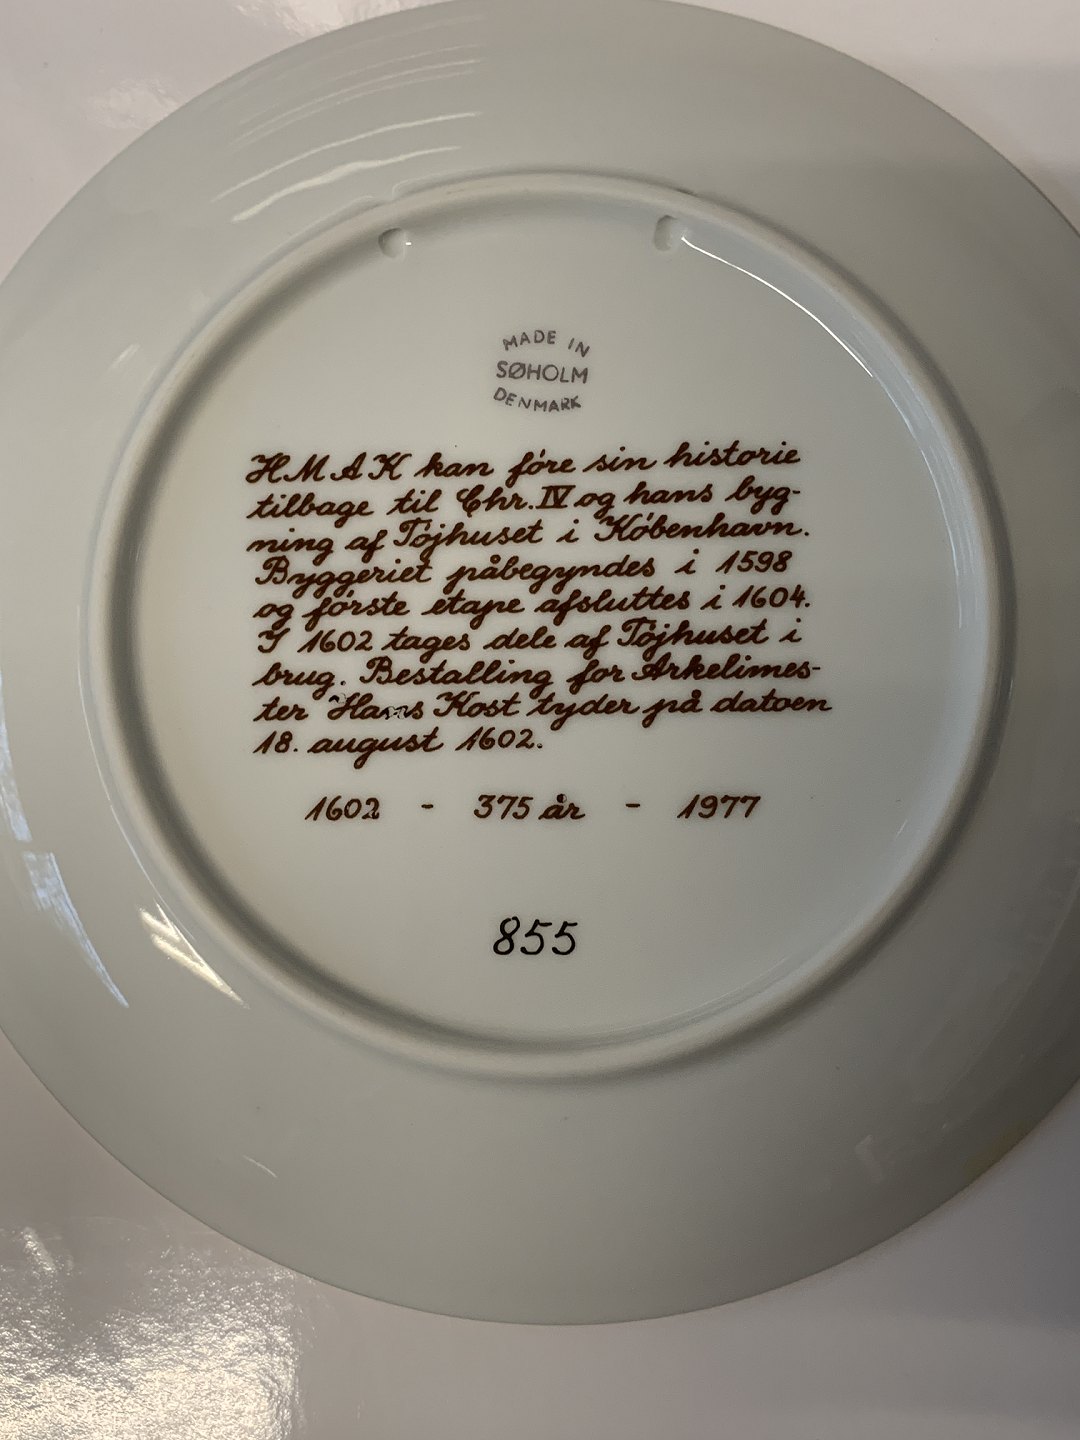 MADE IN
SØHOLM
DENMARK
HMAK kan fóre sin historie
tilbage til Chr. IV og hans byg-
ning af Tójhuset i Kóbenhavn.
Byggeriet påbegyndes i 1598
og fórste etape afsluttes i 1604.
I 1602 tages dele af Tójhuset i
brug. Bestalling for Arkelimes-
ter Hans Kost tyder på datoen
18. august 1602.
1602 - 375 år - 1977
855